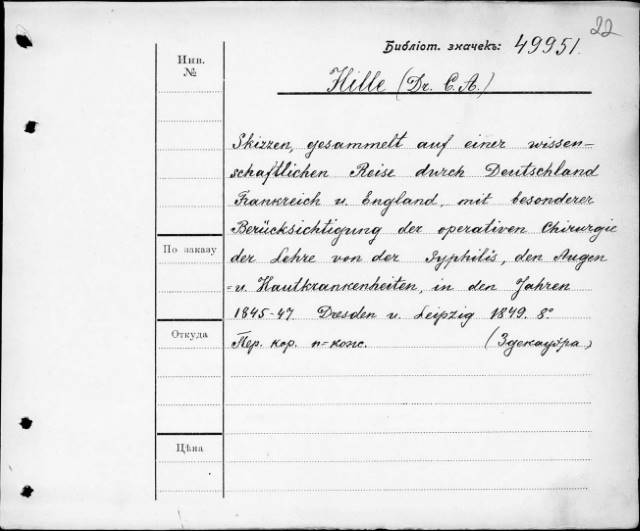 22
Библіот. значекъ: 49951.
Инв.
№
Hille (Dr. C. A.)
Skizzen, gesammelt auf einer wissen=
schaftlichen Reise durch Deutschland
Frankreich u. England, mit besonderer
Berücksichtigung der operativen Chirurgie
По заказу
der Lehre von der Syphilis, den Augen
=u. Hautkrankenheiten, in den Jahren
1845-47. Dresden u. Leipzig 1849. 8º
Откуда
Пер. кор. п=кож. (Здекауэра)
Цѣна